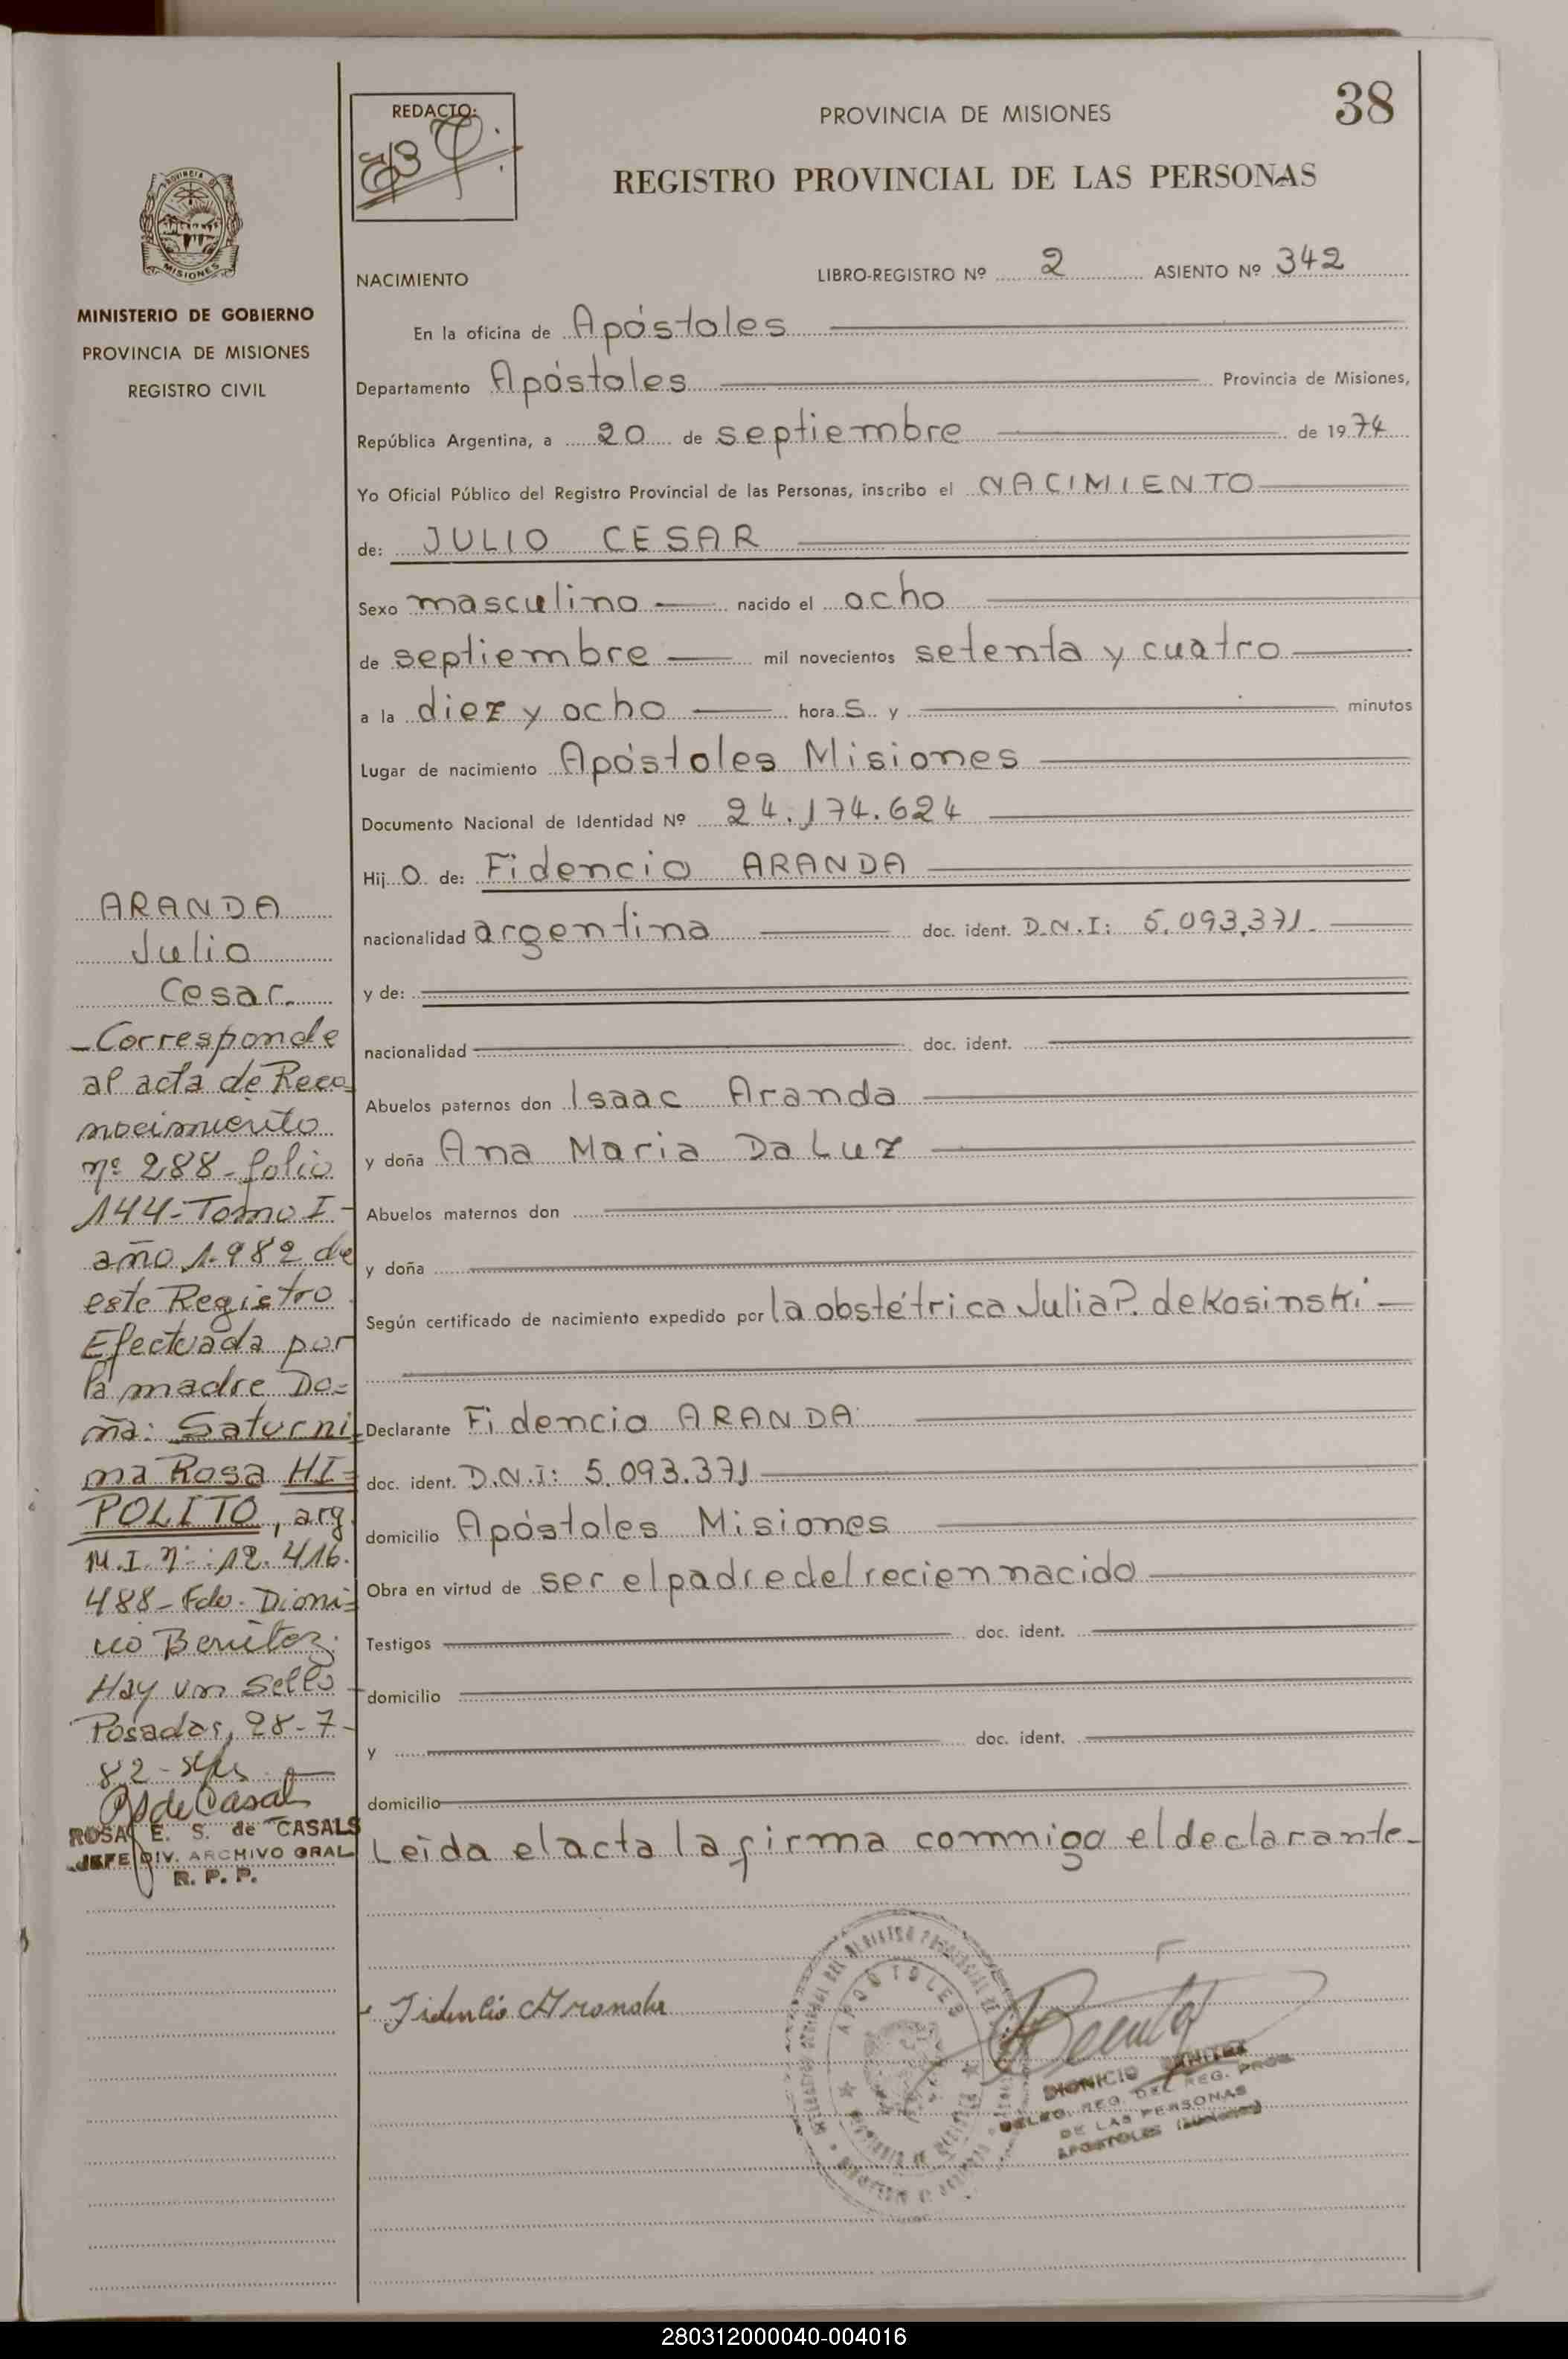 38
REDACTO:
PROVINCIA DE MISIONES
REGISTRO PROVINCIAL DE LAS PERSONAS
MISIONES
MINISTERIO DE GOBIERNO
PROVINCIA DE MISIONES
REGISTRO CIVIL
NACIMIENTO
LIBRO-REGISTRO Nº 2 ASIENTO Nº 342
En la oficina de Apóstoles
Departamento Apóstoles Provincia de Misiones,
República Argentina, a 20 de septiembre de 1974
Yo Oficial Público del Registro Provincial de las Personas, inscribo el NACIMIENTO
de: JULIO CESAR
Sexo masculino nacido el ocho
de septiembre mil novecientos setenta y cuatro
a la diez y ocho horas y minutos
Lugar de nacimiento Apóstoles Misiones
Documento Nacional de Identidad Nº 24.174.624
Hijo de: Fidencio ARANDA
nacionalidad argentina doc. ident. D.N.I: 5.093.371.
y de:
nacionalidad doc. ident.
Abuelos paternos don Isaac Aranda
y doña Ana Maria Da Luz
Abuelos maternos don
y doña
Según certificado de nacimiento expedido por la obstétrica Julia P. de Kosinski
Declarante Fidencio ARANDA
doc. ident. D.N.I: 5.093.371
domicilio Apóstoles Misiones
Obra en virtud de ser el padre del recien nacido
Testigos doc. ident.
domicilio
y doc. ident.
domicilio
Leida el acta la firma conmigo el declarante
ARANDA
Julio
Cesar.
- Corresponde
al acta de Reco=
nocimiento
nº 288 - folio
144 - Tomo I -
año 1.982 de
este Registro
Efectuada por
la madre Do=
ña: Saturni=
na Rosa HI=
POLITO, arg.
M.I. nº: 12.416.
488 - Fdo. Dioni=
cio Benitez.
Hay un sello
Posadas, 28-7-
82 -
RS de Casals
ROSA E. S. de CASALS
JEFE DIV. ARCHIVO GRAL
R. P. P.
Fidencio Aranda
APOSTOLES
Benitez
DIONICIO BENITEZ
DELEG. REG. DEL REG. PROV.
DE LAS PERSONAS
APOSTOLES (Misiones)
280312000040-004016